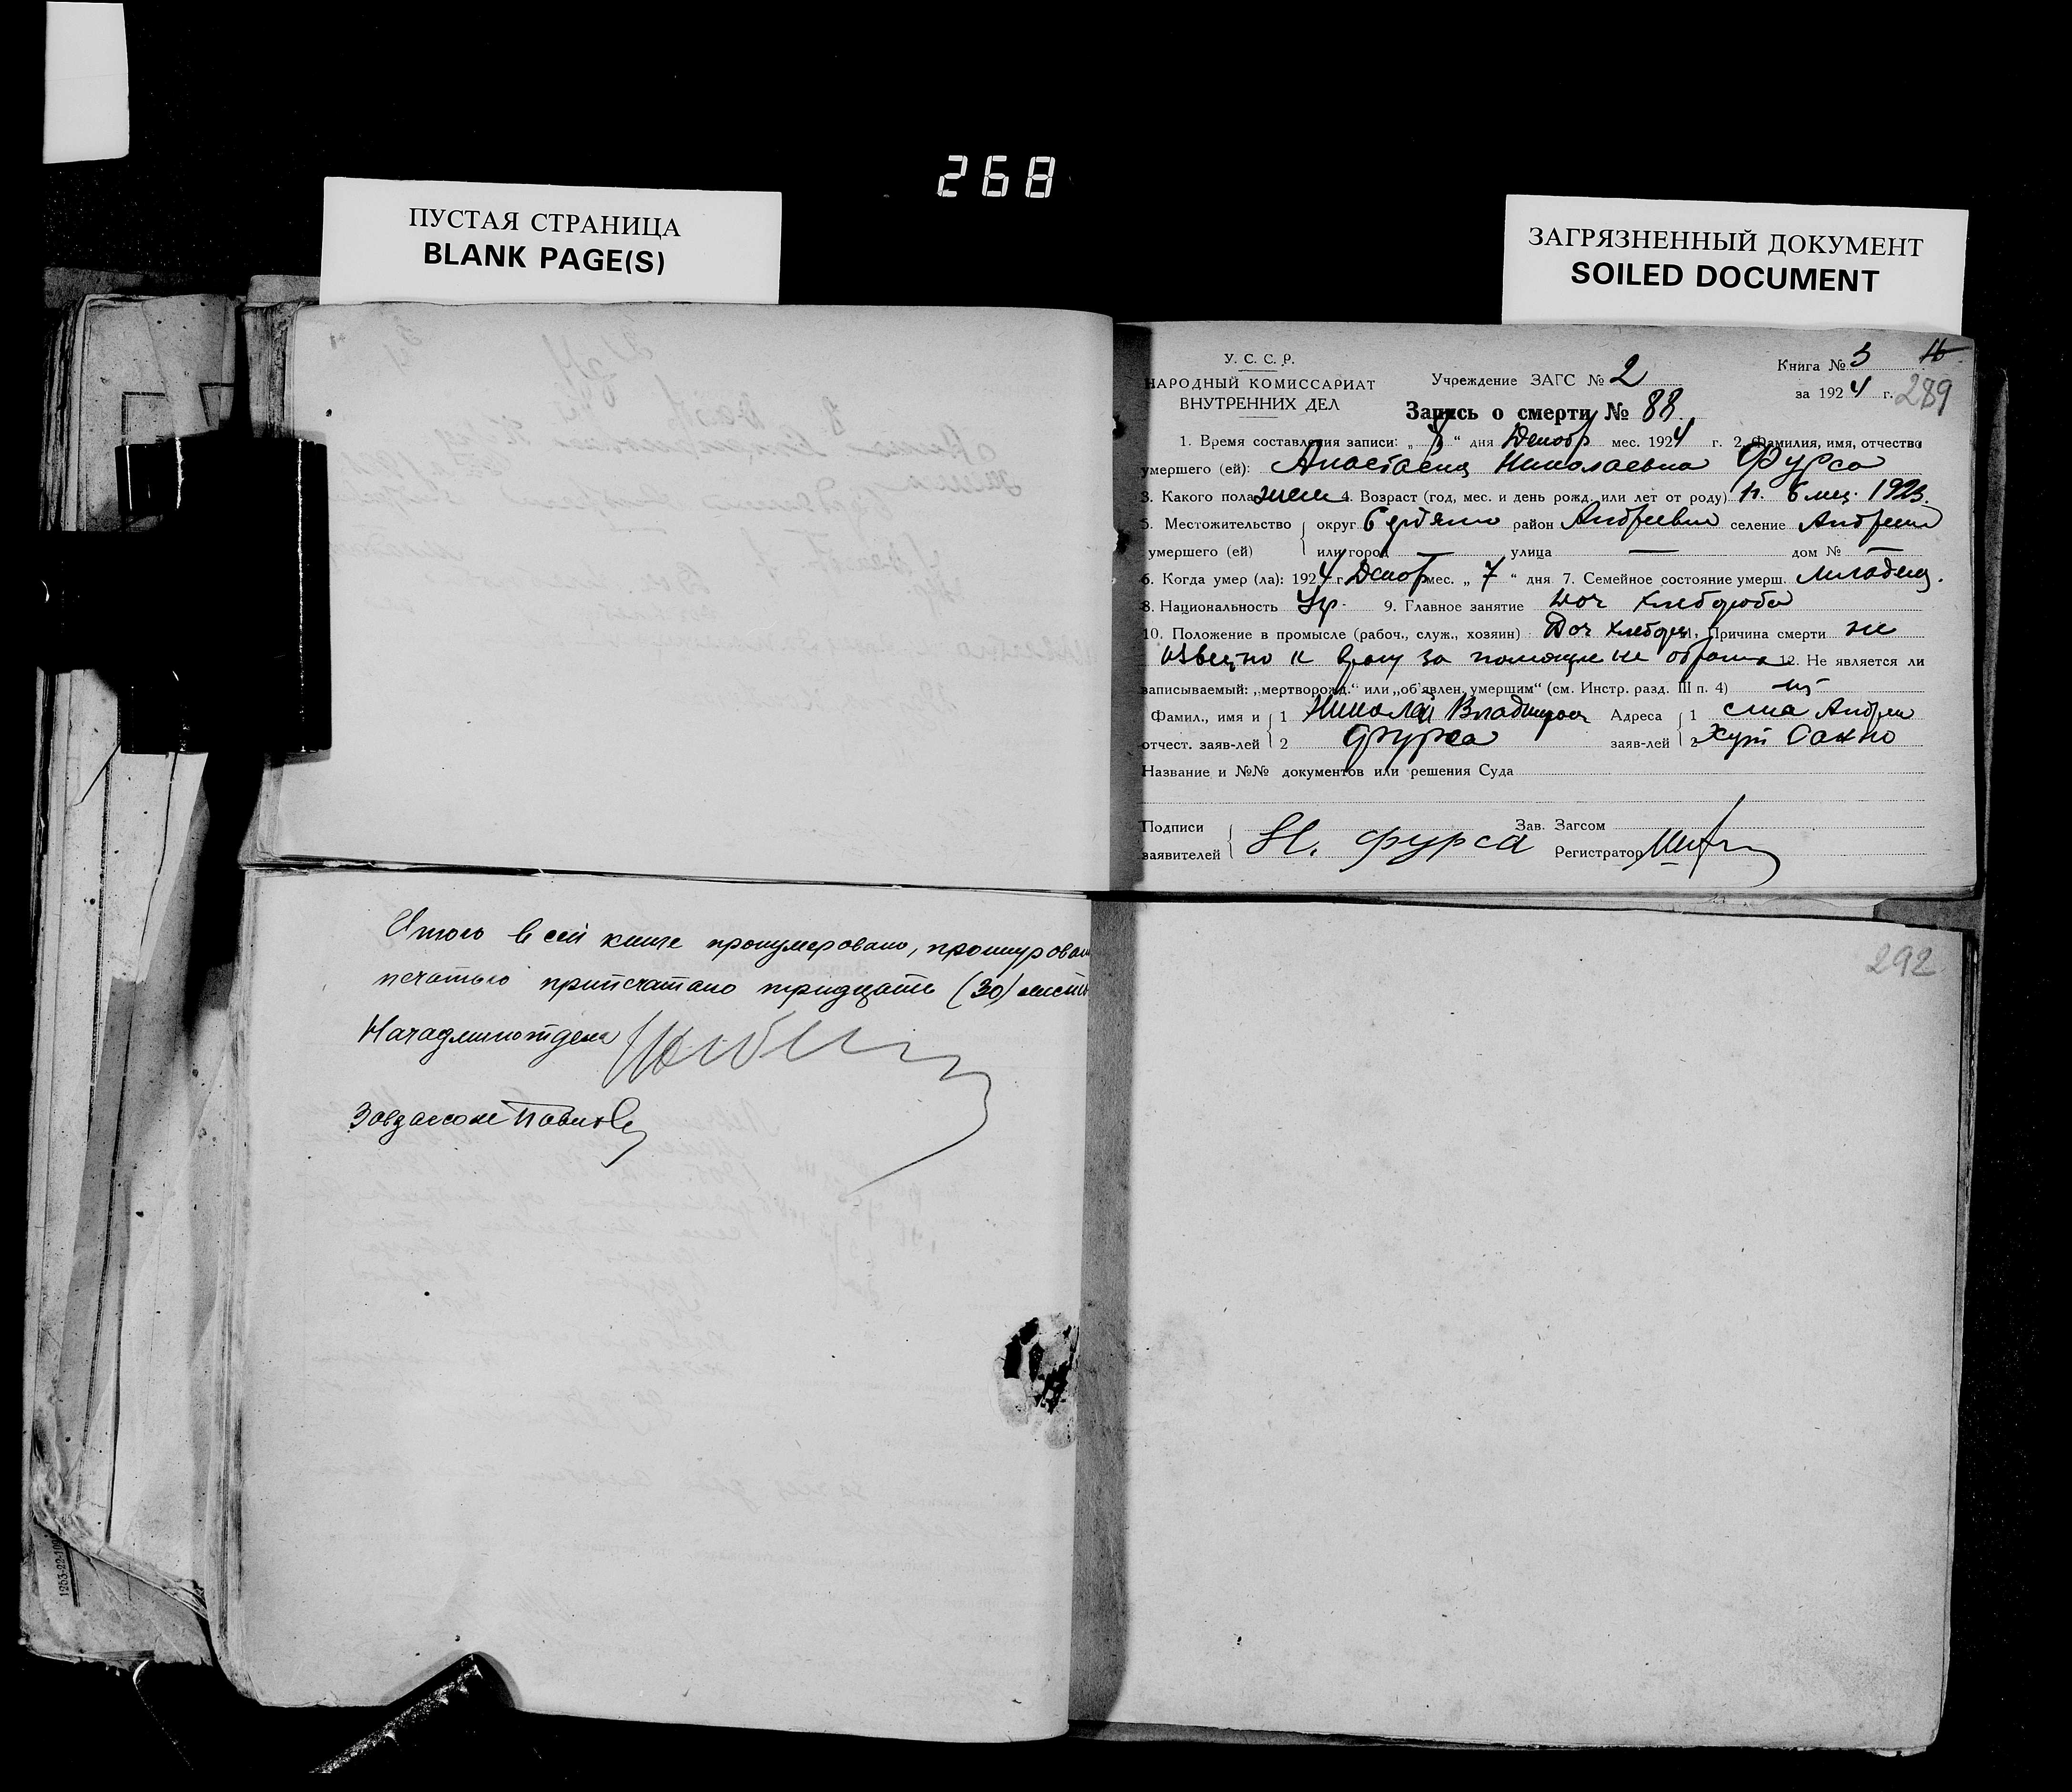 268
ПУСТАЯ СТРАНИЦА
BLANK PAGE(S)
ЗАГРЯЗНЕННЫЙ ДОКУМЕНТ
SOILED DOCUMENT
У. С. С. Р.
НАРОДНЫЙ КОМИССАРИАТ
ВНУТРЕННИХ ДЕЛ
Учреждение ЗАГС № 2
Книга № 3
за 1924 г. 289
Запись о смерти № 88.
1. Время составления записи: „ “ дня Декабр мес. 1924 г. 2. Фамилия, имя, отчество
умершего (ей): Николаевна Фурса
3. Какого пола жен 4. Возраст (год, мес. и день рожд. или лет от роду) 6 мец. 1923.
5. Местожительство округ Бердянс район Андреевка селение
умершего (ей) или город — улица — дом № —
6. Когда умер (ла): 1924 г. мес. „ 7 “ дня 7. Семейное состояние умерш. младенц.
8. Национальность Укр. 9. Главное занятие доч хлебороба
10. Положение в промысле (рабоч., служ., хозяин) Доч хлебор 11. Причина смерти не
к врачу за помощью не 12. Не является ли
записываемый: „мертворожд.“ или „об'явлен. умершим“ (см. Инстр. разд. III п. 4)
Фамил., имя и 1 Николай Адреса 1
отчест. заяв-лей 2 Фурса заяв-лей 2 Хут Сахно
Название и №№ документов или решения Суда
Подписи Зав. Загсом
заявителей Н. Фурса Регистратор
Итого в сей книге пронумеровано, прошнурован
печатью припечатано тридцать (30) листов
Начадминотдела
Завзагсом
292